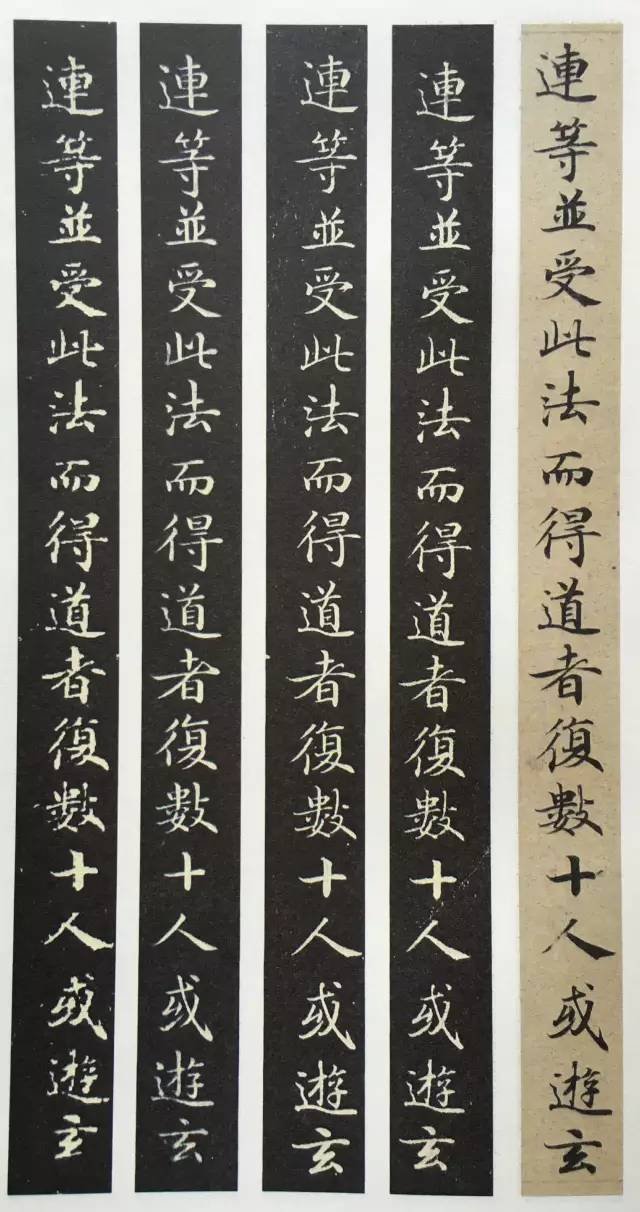 連等並受此法而得道者復數十人或遊玄
連等並受此法而得道者復數十人或遊玄
連等並受此法而得道者復數十人或遊玄
連等並受此法而得道者復數十人或遊玄
連等並受此法而得道者復數十人或遊玄